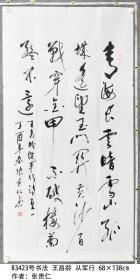 青海长云暗雪山孤
城遥望玉门关黄沙百
战穿金甲不破楼兰
终不还
B3423号书法 王昌龄 从军行 68×138cm
作者：张贵仁